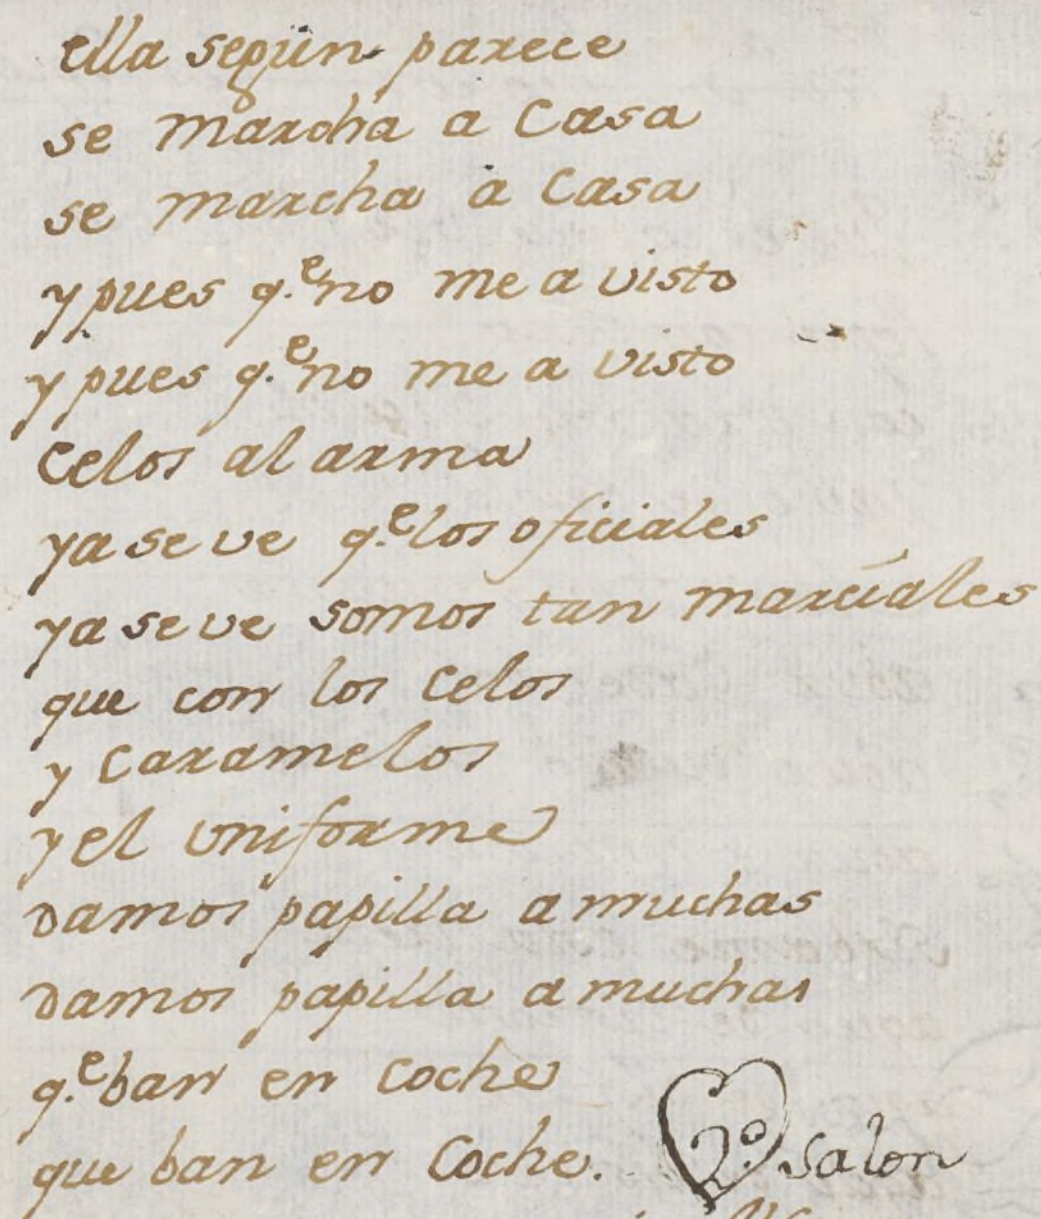 ella segun parece
se marcha a Casa
se marcha a Casa
y pues q.e no me a visto
y pues q.e no me a visto
Celos al arma
ya se ve q.e los oficiales
ya se ve somos tan marciales
que con los Celos
y Caramelos
y el uniforme
damos papilla a muchas
damos papilla a muchas
q.e ban en coche
que ban en Coche. 2º salon